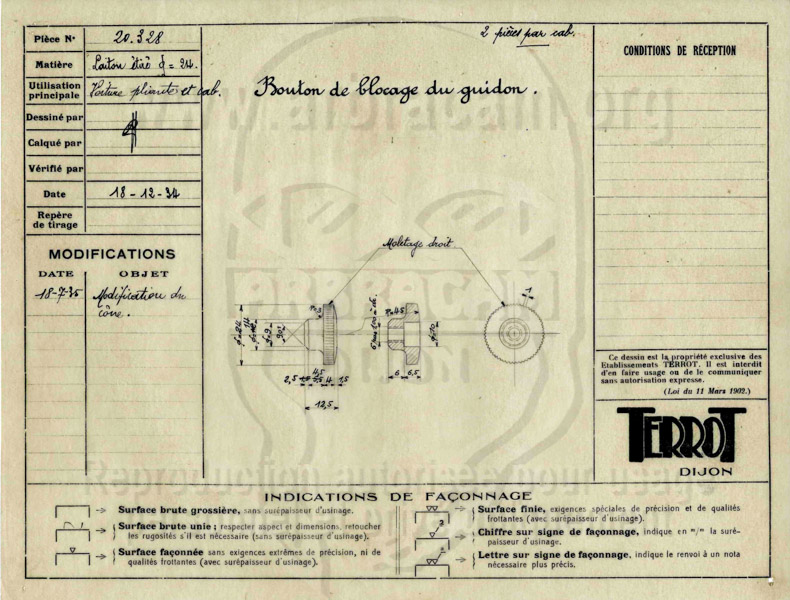 Pièce N° 20.328
Matière Laiton étiré ϕ = 24.
Utilisation principale Voiture pliante et cab.
Dessiné par
Calqué par
Vérifié par
Date 18-12-34
Repère de tirage
MODIFICATIONS
DATE OBJET
18-7-35 Modification du
cône.
2 pièces par cab.
Bouton de blocage du guidon.
Moletage droit
2,5
4,5
4
1,5
12,5
6
6,5
CONDITIONS DE RÉCEPTION
Ce dessin est la propriété exclusive des
Etablissements TERROT. Il est interdit
d'en faire usage ou de le communiquer
sans autorisation expresse.
(Loi du 11 Mars 1902.)
TERROT
DIJON
INDICATIONS DE FAÇONNAGE
Surface brute grossière, sans surépaisseur d'usinage.
Surface brute unie; respecter aspect et dimensions, retoucher
les rugosités s'il est nécessaire (sans surépaisseur d'usinage).
Surface façonnée sans exigences extrêmes de précision, ni de
qualités frottantes (avec surépaisseur d'usinage).
Surface finie, exigences spéciales de précision et de qualités
frottantes (avec surépaisseur d'usinage).
Chiffre sur signe de façonnage, indique en "/" la surépaisseur d'usinage.
Lettre sur signe de façonnage, indique le renvoi à un nota
nécessaire plus précis.
Reproduction autorisée pour usage